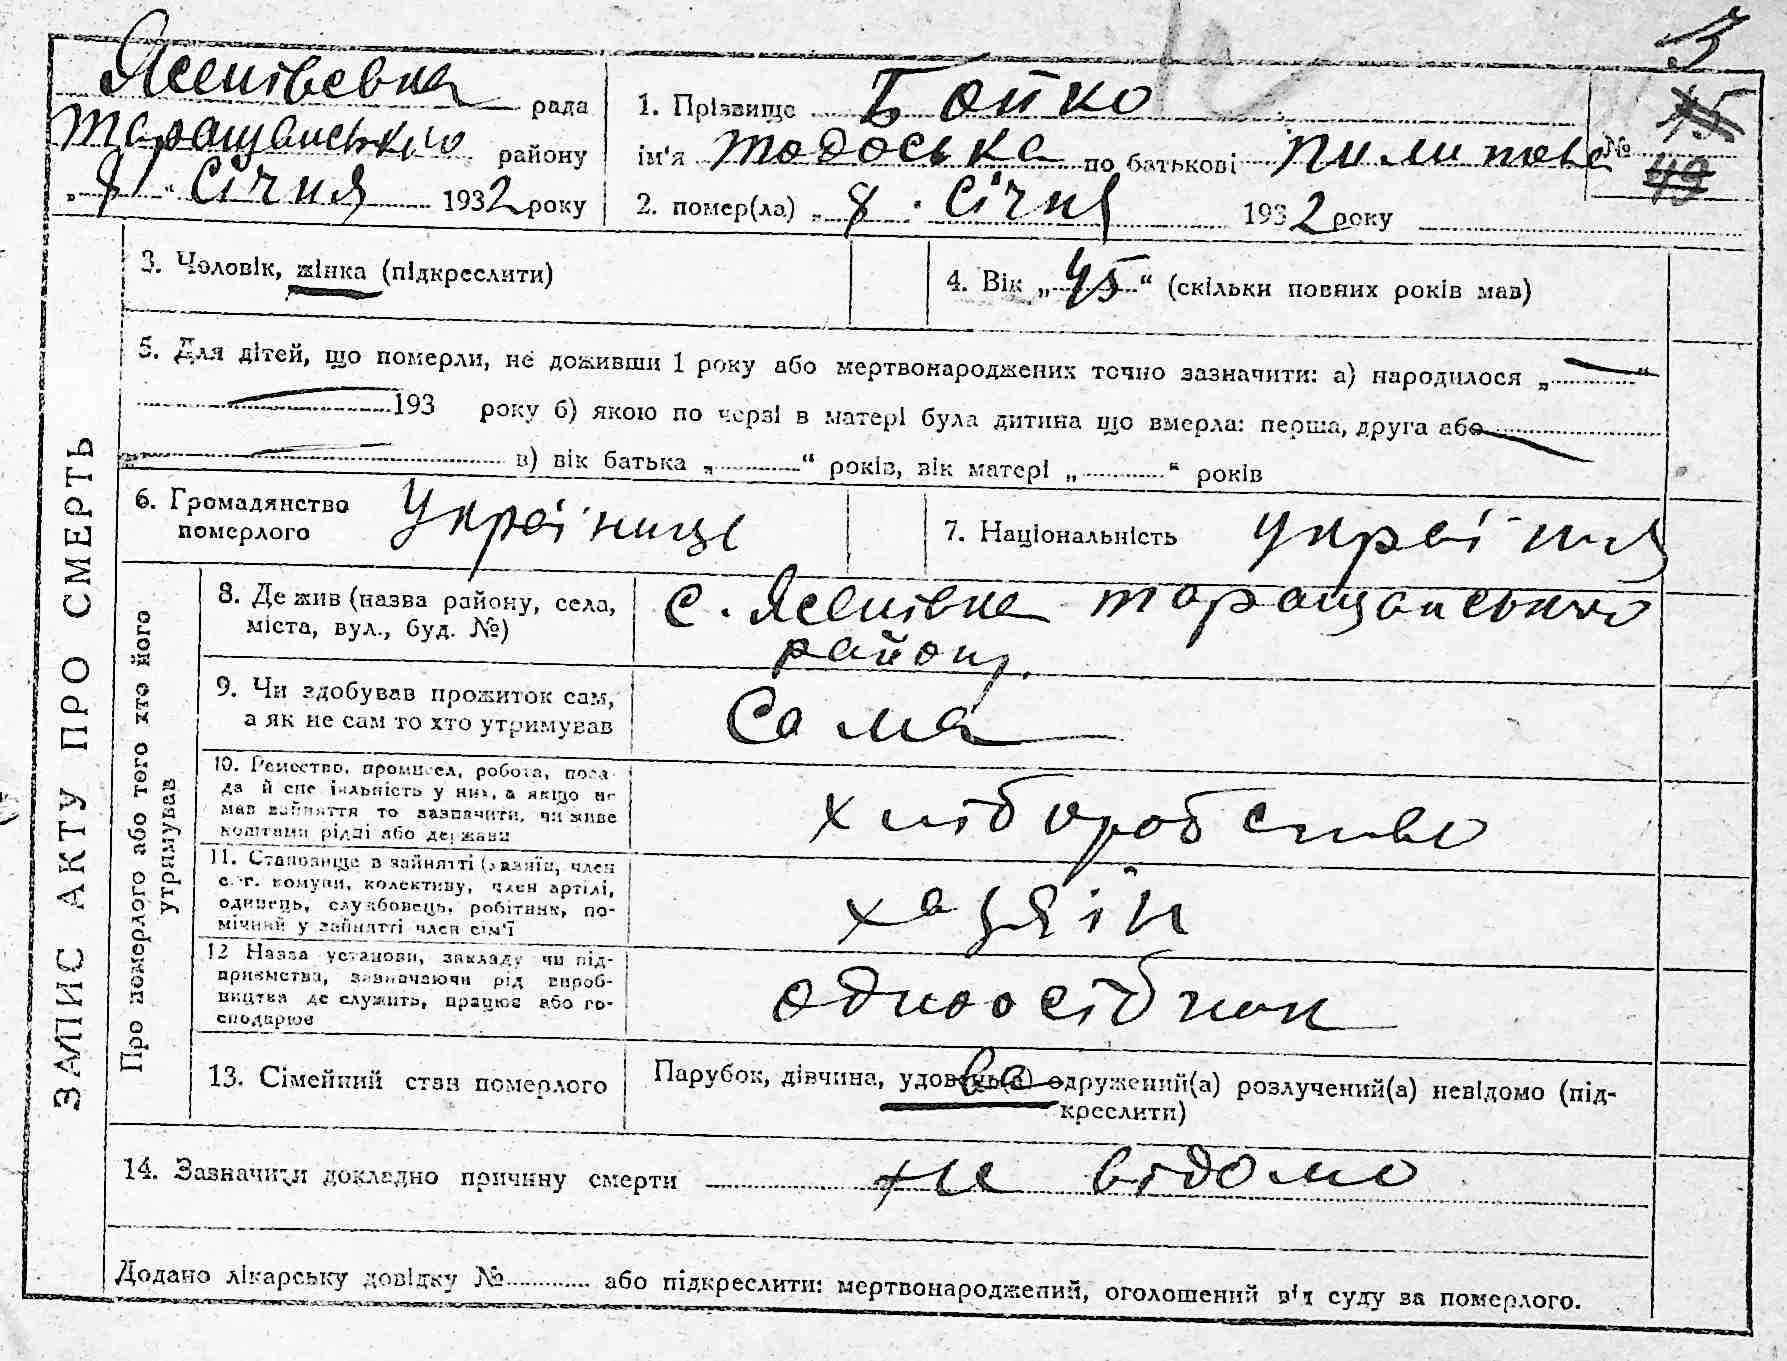 3
Ясенівська рада
Таращанського району
„8" Січня 1932 року
1. Прізвище Бойко
ім'я Тодоська по батькові Пилипова
№ 15
49
2. помер(ла) „8. Січня 1932 року
3. Чоловік, жінка (підкреслити)
4. Вік „45" (скільки повних років мав)
5. Для дітей, що померли, не доживши 1 року або мертвонароджених точно зазначити: а) народилося „ "
193 року б) якою по черзі в матері була дитина що вмерла: перша, друга або
в) вік батька „ " років, вік матері „ " років
ЗАПИС АКТУ ПРО СМЕРТЬ
6. Громадянство
померлого
7. Національність
Про померлого або того хто його
утримував
8. Де жив (назва району, села,
міста, вул., буд. №)
с. Ясенівка Таращанського
району.
9. Чи здобував прожиток сам,
а як не сам то хто утримував
Сама
10. Ремество, промисел, робота, поса-
да й спеціяльність у них, а якщо не
мав зайняття то зазначити, чи живе
коштами рідні або держави
хліборобство
11. Становище в зайнятті (хазяїн, член
с.-г. комуни, колективу, член артілі,
одинець, службовець, робітник, по-
мічний у зайнятті член сім'ї
хазяїн
12 Назва установи, закладу чи під-
приємства, зазначаючи рід вироб-
ництва де служить, працює або го-
сподарює
одноосібник
13. Сімейний стан померлого
Парубок, дівчина, удовець(а) одружений(а) розлучений(а) невідомо (під-
креслити)
ва
14. Зазначити докладно причину смерти не відомо
Додано лікарську довідку № або підкреслити: мертвонароджений, оголошений від суду за померлого.